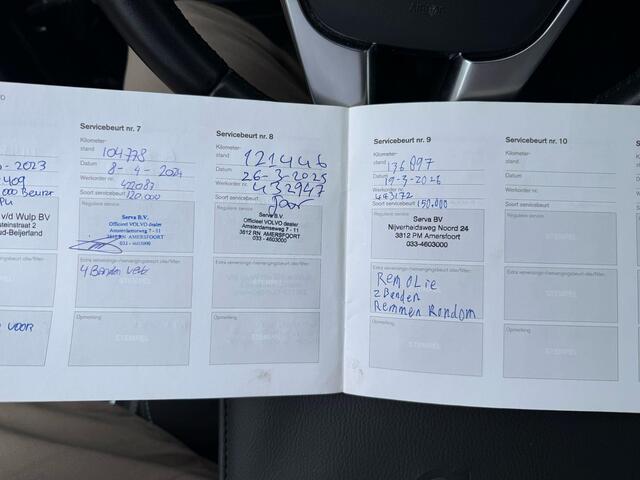 Servicebeurt nr. 7
Kilometer-
stand 104778
Datum 8-4-2024
Werkorder nr. 422087
Soort servicebeurt 120.000
Reguliere service
Serva B.V.
Officieel VOLVO dealer
Amsterdamseweg 7 - 11
3812 RN AMERSFOORT
033-4603000
Extra verversings-/vervangingsbeurt olie/filter:
4 Banden
Opmerking
STEMPEL
Servicebeurt nr. 8
Kilometer-
stand 121446
Datum 26-3-2025
Werkorder nr. 432947
Soort servicebeurt Jaar
Reguliere service
Serva B.V.
Officieel VOLVO dealer
Amsterdamseweg 7 - 11
3812 RN AMERSFOORT
033-4603000
Extra verversings-/vervangingsbeurt olie/filter:
Opmerking
STEMPEL
Servicebeurt nr. 9
Kilometer-
stand 136097
Datum 19-3-2026
Werkorder nr. 443172
Soort servicebeurt 150.000
Reguliere service
Serva BV
Nijverheidsweg Noord 24
3812 PM Amersfoort
033-4603000
Extra verversings-/vervangingsbeurt olie/filter:
Rem Olie
2 Banden
Remmen Rondom
Opmerking
STEMPEL
Servicebeurt nr. 10
Kilometer-
stand
Datum
Werkorder nr.
Soort servicebeurt
Reguliere service
STEMPEL
Extra verversings-/vervangingsbeurt olie/filter:
STEMPEL
Opmerking
STEMPEL
-2023
409
000 Beurt
v/d Wulp BV
steinstraat 2
ud-Beijerland
voor